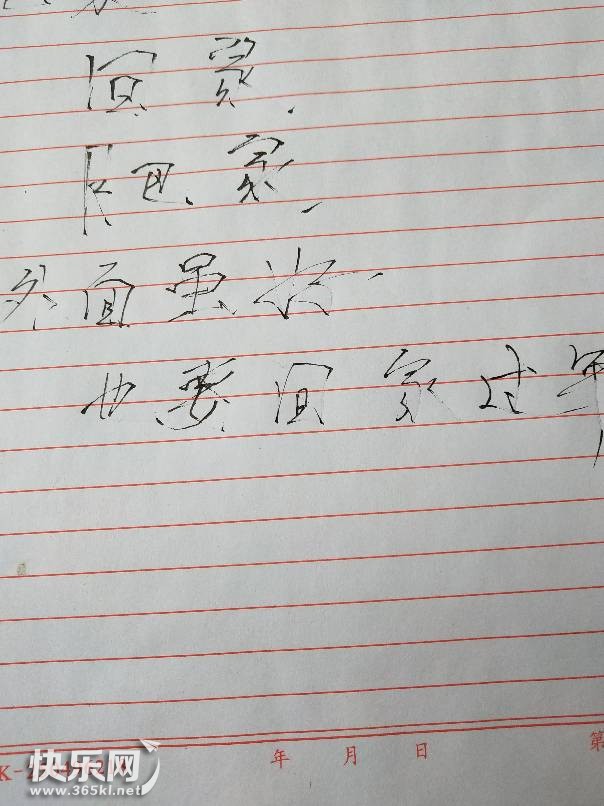 回家.
爬家,
外面虽好
也要回家过年
年 月 日 第
快乐网
www.365kl.net